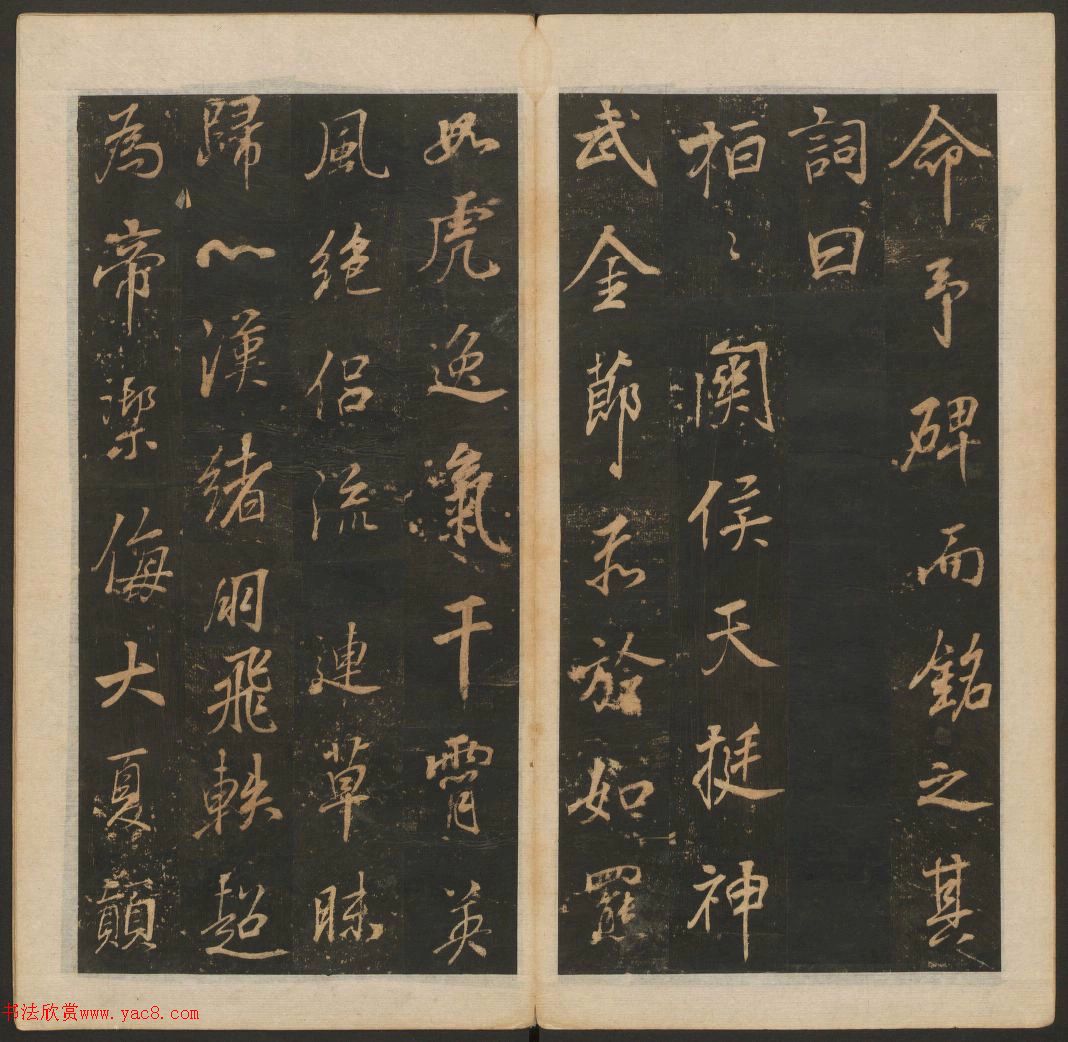 命予碑而銘之其
詞曰
桓〻關侯天挺神
武金節如羆
如虎逸氣干霄英
風絕侶流連草昧
歸心漢緒朋飛軼超
為帝禦侮大夏顛
书法欣赏www.yac8.com